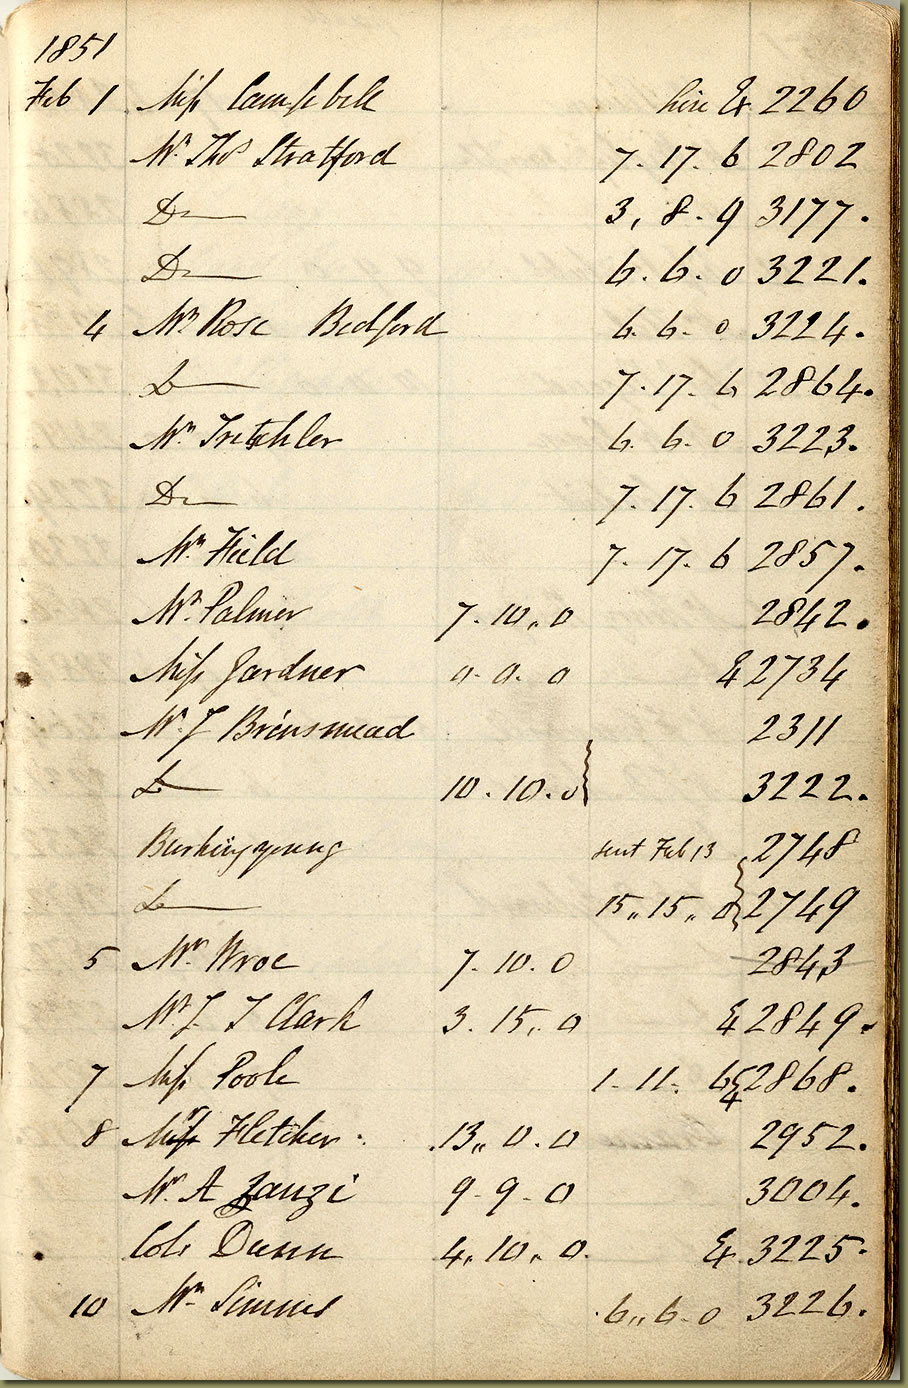 1851
Feb 1 Miss Campbell hire Ex 2260
Mr Thos Stratford 7. 17. 6 2802
Do 3, 8. 9 3177.
Do 6. 6. 0 3221.
4 Mr Rose Bedford 6. 6. 0 3224.
Do 7. 17. 6 2864.
Mr 6. 6. 0 3223.
Do 7. 17. 6 2861.
Mr Field 7. 17. 6 2857.
Mr Palmer 7. 10,, 0 2842.
Miss Gardner 0. 0. 0 & 2734
Mr J Brinsmead 2311
Do 10. 10. 0 3222.
sent Feb 13 2748
Do 15,, 15,, 0 2749
5 Mr Wroe 7. 10. 0 2843
Mr J. T Clark 3. 15,, 0 & 2849.
7 Miss Poole 1. 11. 6 & 2868.
8 Fletcher . 13,, 0. 0 2952.
Mr A Zanzi 9. 9. 0 3004.
Col. Dunn 4,, 10,, 0. & 3225.
10 Mr Simms 6,, 6. 0 3226.